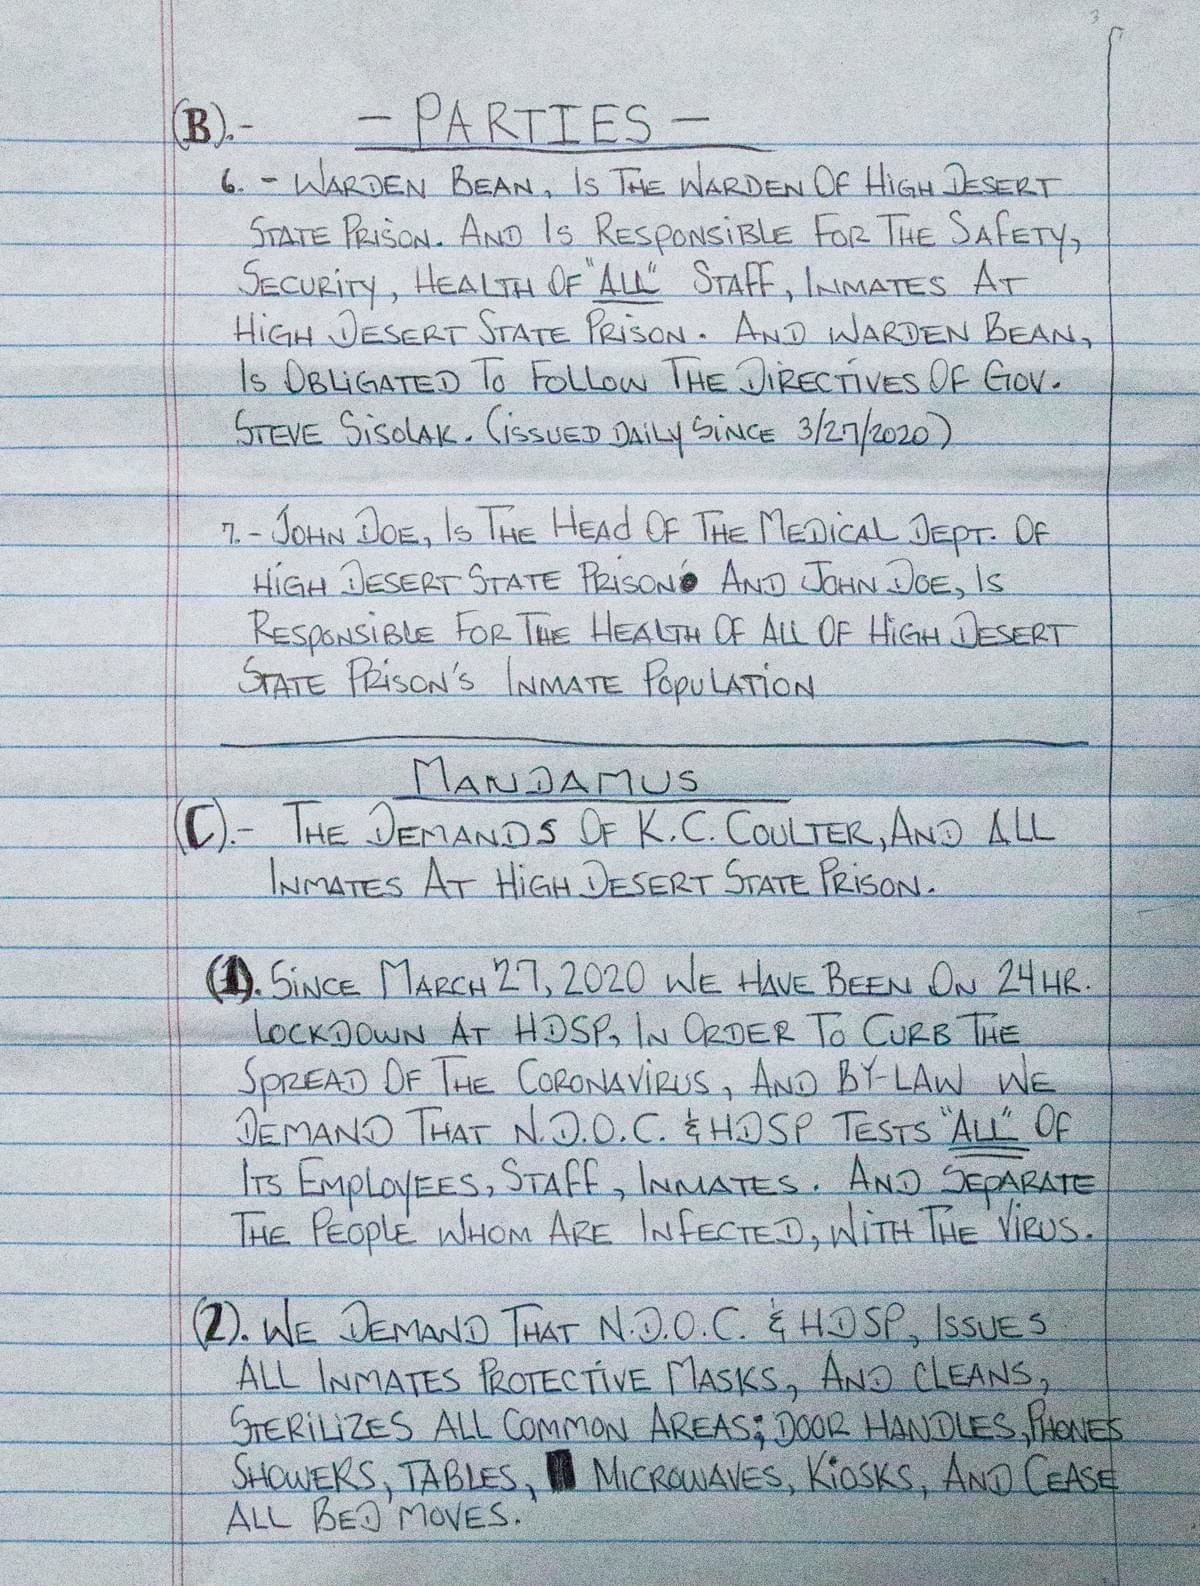 3
(B).- - PARTIES -
6. - WARDEN BEAN, IS THE WARDEN OF HIGH DESERT
STATE PRISON. AND IS RESPONSIBLE FOR THE SAFETY,
SECURITY, HEALTH OF "ALL" STAFF, INMATES AT
HIGH DESERT STATE PRISON. AND WARDEN BEAN,
IS OBLIGATED TO FOLLOW THE DIRECTIVES OF GOV.
STEVE SISOLAK. (ISSUED DAILY SINCE 3/27/2020)
7. - JOHN DOE, IS THE HEAD OF THE MEDICAL DEPT. OF
HIGH DESERT STATE PRISON. AND JOHN DOE, IS
RESPONSIBLE FOR THE HEALTH OF ALL OF HIGH DESERT
STATE PRISON'S INMATE POPULATION
MANDAMUS
(C).- THE DEMANDS OF K.C. COULTER, AND ALL
INMATES AT HIGH DESERT STATE PRISON.
(1). SINCE MARCH 27, 2020 WE HAVE BEEN ON 24 HR.
LOCKDOWN AT HDSP, IN ORDER TO CURB THE
SPREAD OF THE CORONAVIRUS, AND BY-LAW WE
DEMAND THAT N.D.O.C. & HDSP TESTS "ALL" OF
ITS EMPLOYEES, STAFF, INMATES. AND SEPARATE
THE PEOPLE WHOM ARE INFECTED, WITH THE VIRUS.
(2). WE DEMAND THAT N.D.O.C. & HDSP, ISSUES
ALL INMATES PROTECTIVE MASKS, AND CLEANS,
STERILIZES ALL COMMON AREAS; DOOR HANDLES, PHONES
SHOWERS, TABLES, MICROWAVES, KIOSKS, AND CEASE
ALL BED MOVES.